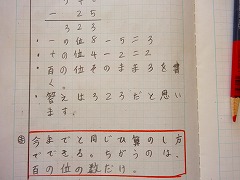 － 25
323
・一の位8－5＝3
・十の位4－2＝2
・百の位そのまま3を書
く。
・答えは323だと思い
ます。
今までと同じひっ算のし方
でできる。ちがうのは、
百の位の数だけ。